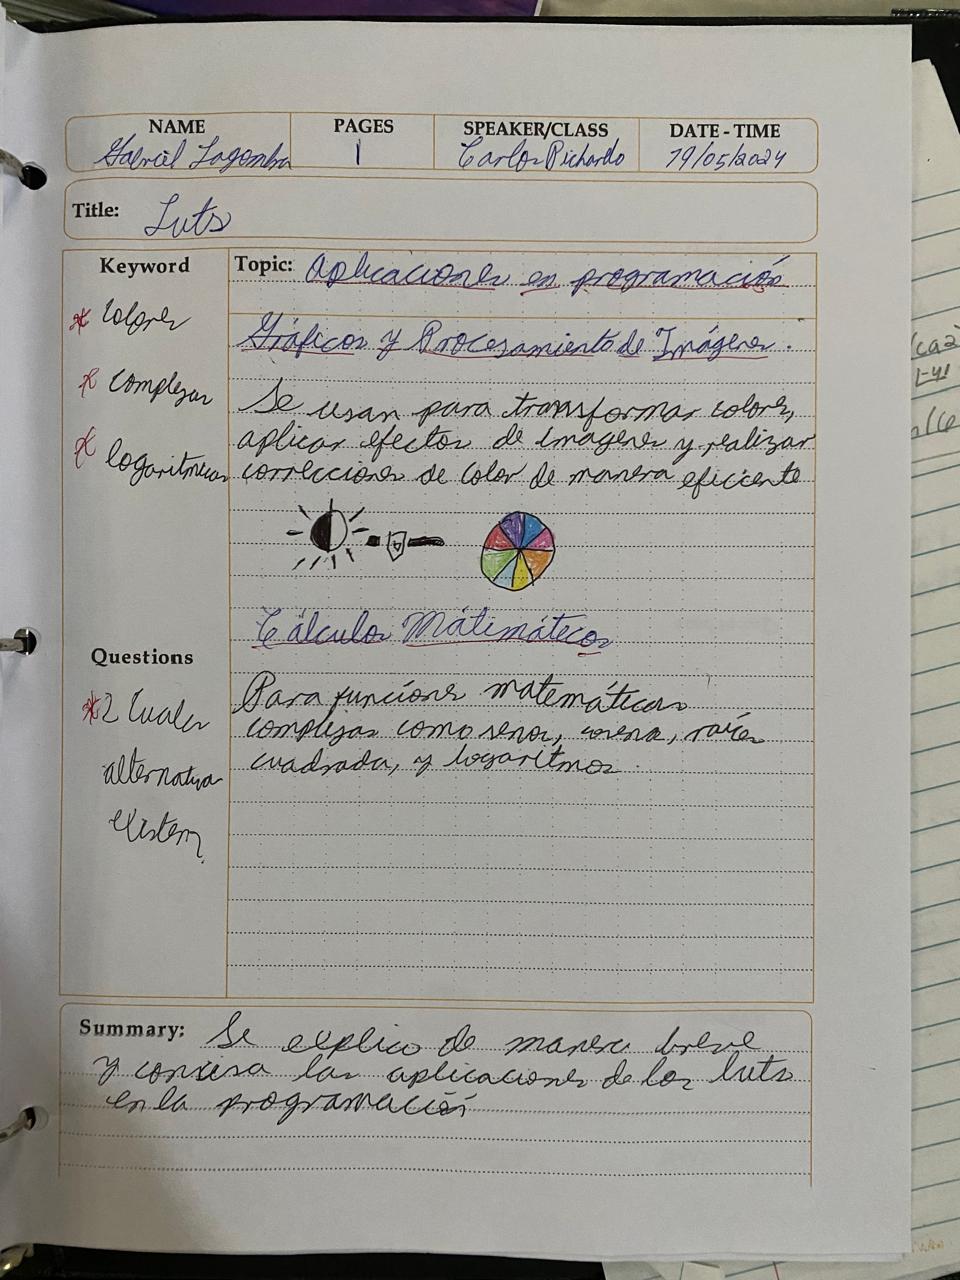 NAME PAGES SPEAKER/CLASS DATE - TIME
Gabriel Lagombra 1 Carlos Pichardo 19/05/2024
Title: Luts
Keyword
* Colores
* Complejas
* logaritmicas
Topic: Aplicaciones en programación
Gráficos y Procesamiento de Imágenes.
Se usan para transformar colores,
aplicar efectos de imagenes y realizar
correcciones de color de manera eficiente
Cálculos Mátimáticos
Para funciones matemáticas
complejas como senos, coseno, raíces
cuadrada, y logaritmos.
Questions
* ¿ Cuales
alternativa
existen?
Summary: Se explico de manera breve
y concisa las aplicaciones de los luts
en la programación